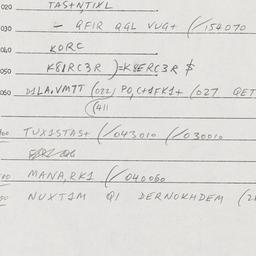 020 TAS+NTIXL
030 - QFIR QGL VUG+ (/154070
040 KORC
050 K81RC3R )=K8ERC3R $
060 D1LA.VM7T (022) PO,C+1FK1+ (027 QET
(411
TUX1STAS+ (/043010 (/030010
MANA,RK1 (/040060
NUXT1M QI DERNOKHDEM (2